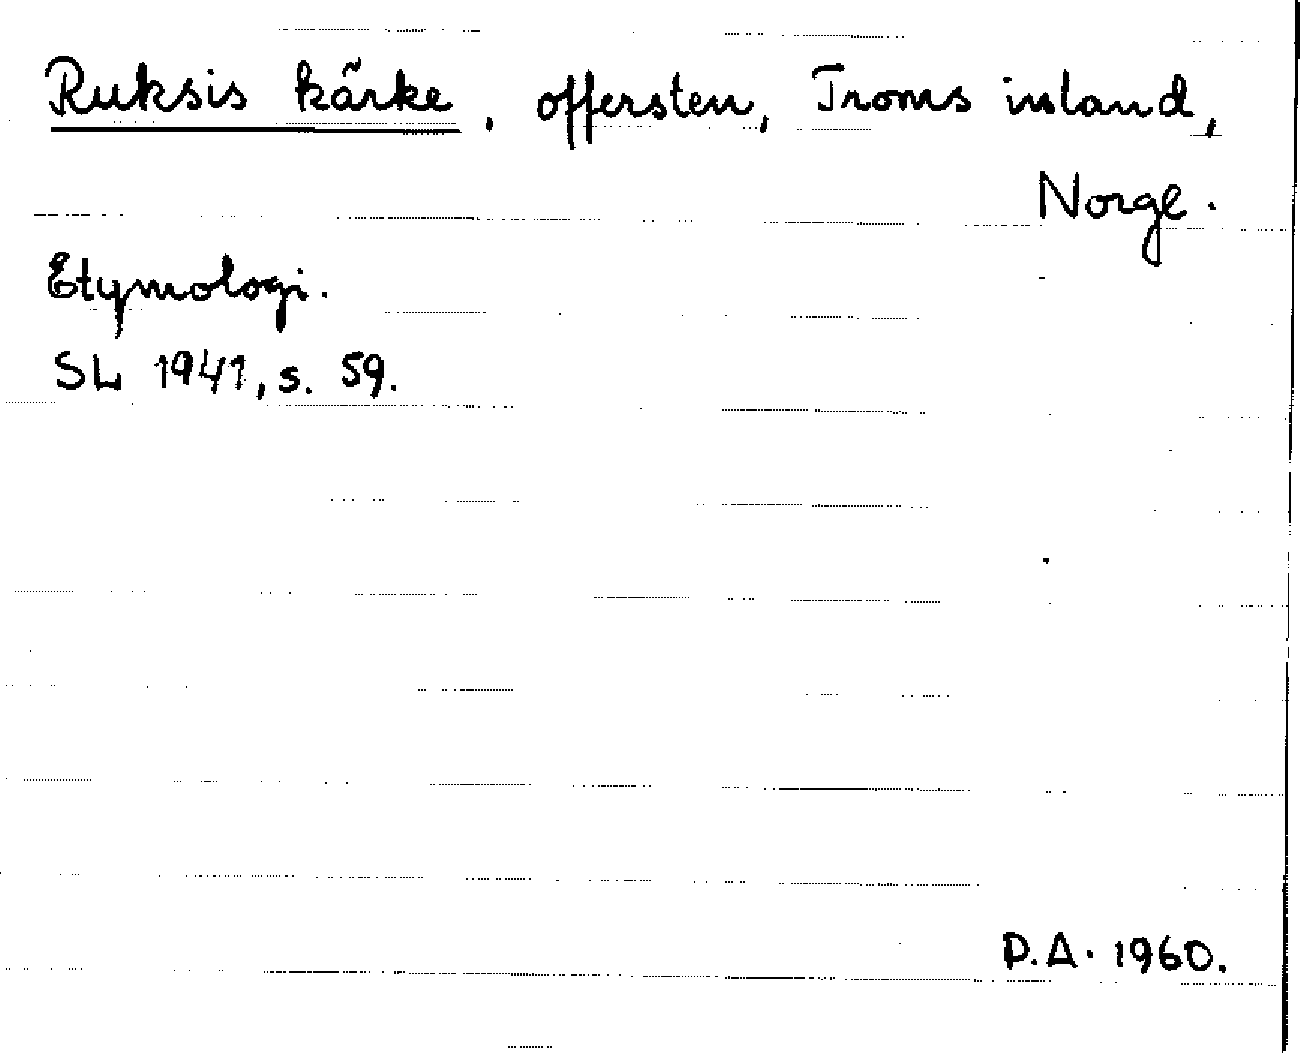 Ruksis kärke, offersten, Troms inland,
Norge.
Etymologi.
SL 1941, s. 59.
P.A. 1960.